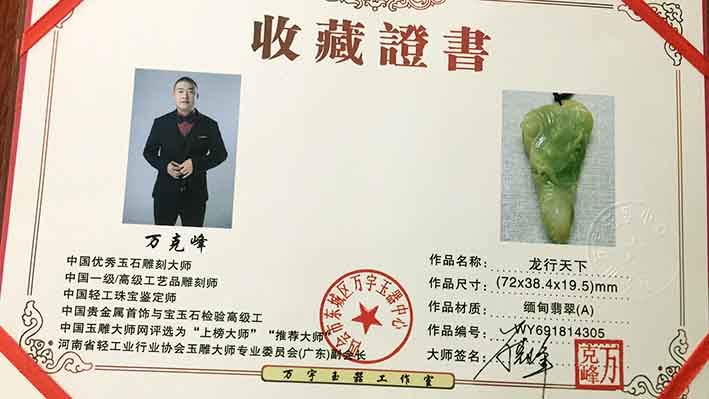 收藏證書
万克峰
中国优秀玉石雕刻大师
中国一级/高级工艺品雕刻师
中国轻工珠宝鉴定师
中国贵金属首饰与宝玉石检验高级工
中国玉雕大师网评选为“上榜大师”“推荐大师”
河南省轻工业行业协会玉雕大师专业委员会(广东)副会长
作品名称: 龙行天下
作品尺寸: (72x38.4x19.5)mm
作品材质: 缅甸翡翠(A)
作品编号: WY691814305
大师签名:
万克峰
市东城区万宇玉器中心
万宇玉器工作室